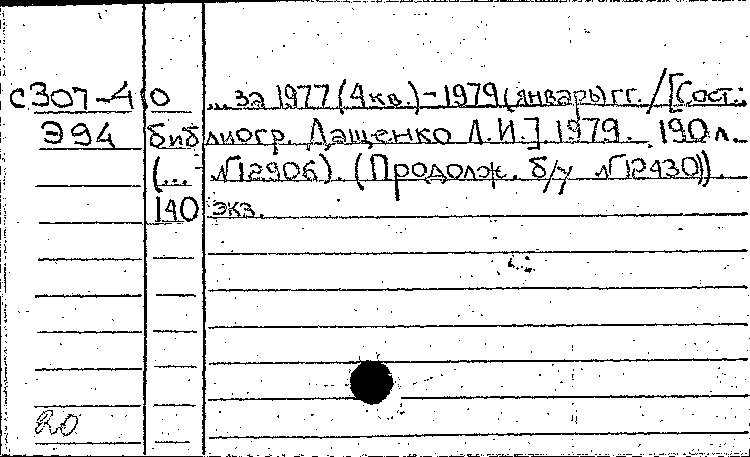 с307-4 0 ... за 1977 (4 кв.) - 1979 (январь) гг. / [Сост.:
Э94 библиогр. Дащенко Л.И.]. 1979. 190 л.
(... №12906). (Продолж. б/у №12430)).
140 экз.
20